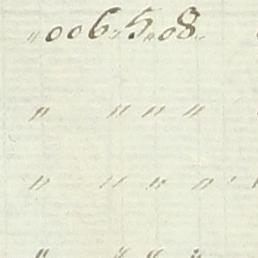 „006„5„08„
„ „ „ „
„ „ „ „
„ „ „ „